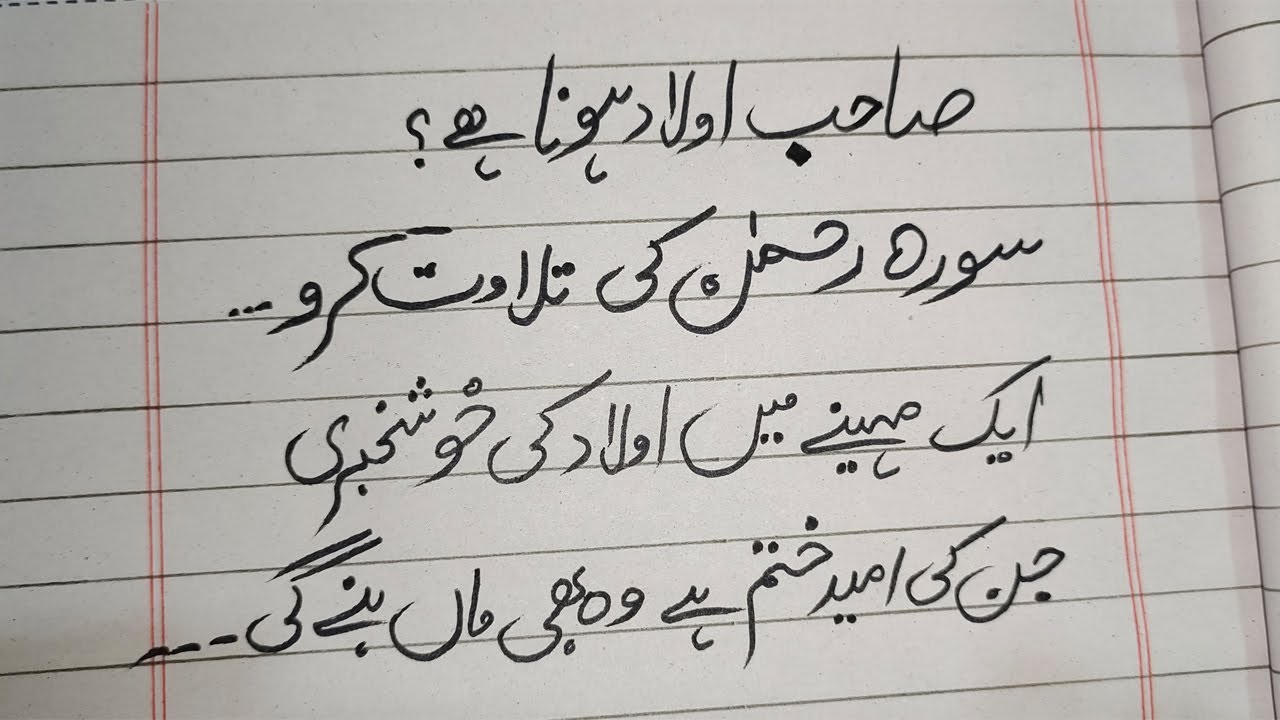 صاحب اولاد ہونا ہے؟
سورہ رحمٰن کی تلاوت کرو...
ایک مہینے میں اولاد کی خوشخبری
جن کی امید ختم ہے وہ بھی ماں بنے گی ۔۔۔